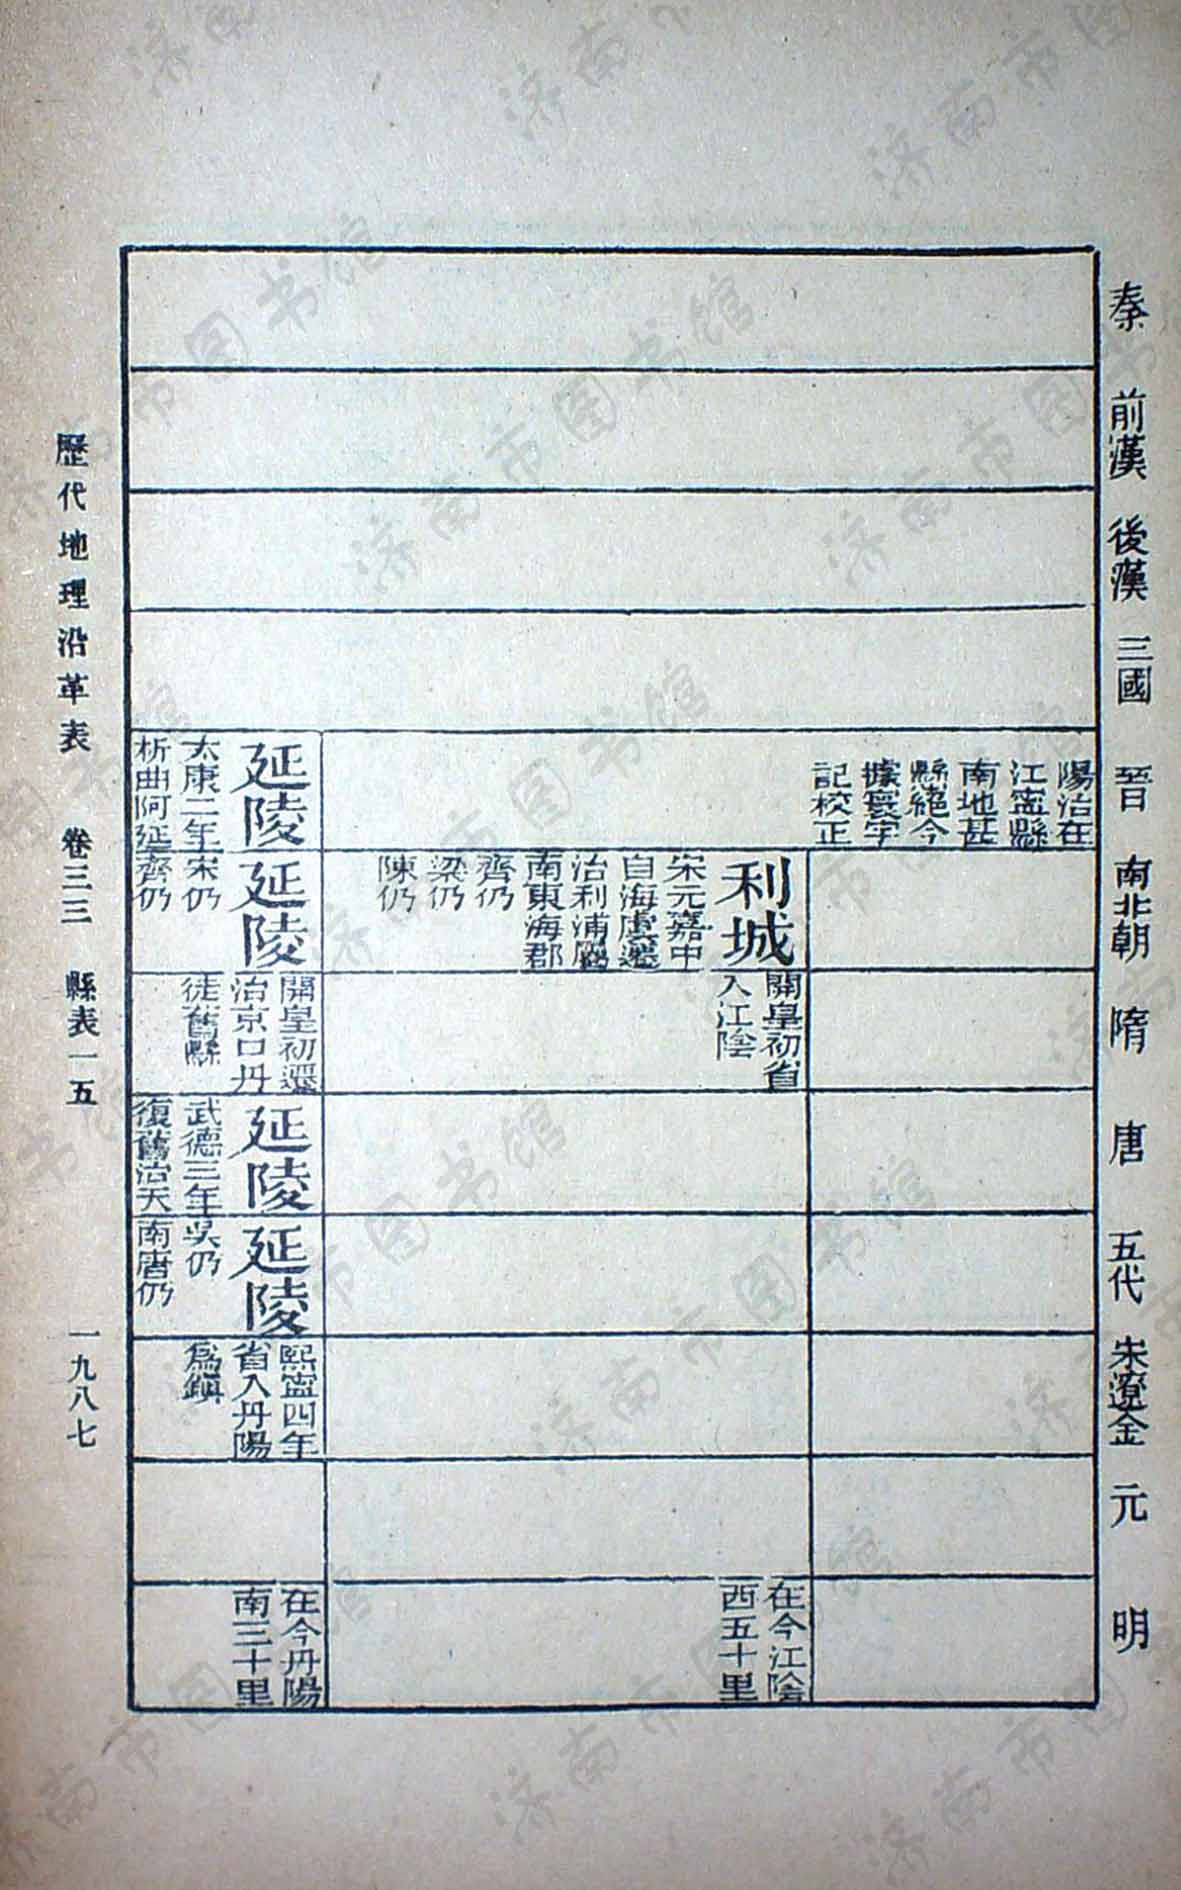 秦
前漢
後漢
三國
晉
南北朝
隋
唐
五代
宋遼金
元
明
陽治在
江寧縣
南地甚
縣絕今
據寰宇
記校正
利城
宋元嘉中
自海虞遷
治利浦屬
南東海郡
齊仍
梁仍
陳仍
開皇初省
入江陰
在今江陰
西五十里
延陵
太康二年
析曲阿延
延陵
宋仍
齊仍
開皇初遷
治京口丹
徒舊縣
延陵
武德三年
復舊治天
延陵
吳仍
南唐仍
熙寧四年
省入丹陽
為鎮
在今丹陽
南三十里
歷代地理沿革表 卷三三 縣表一五 一九八七
济南市图书馆